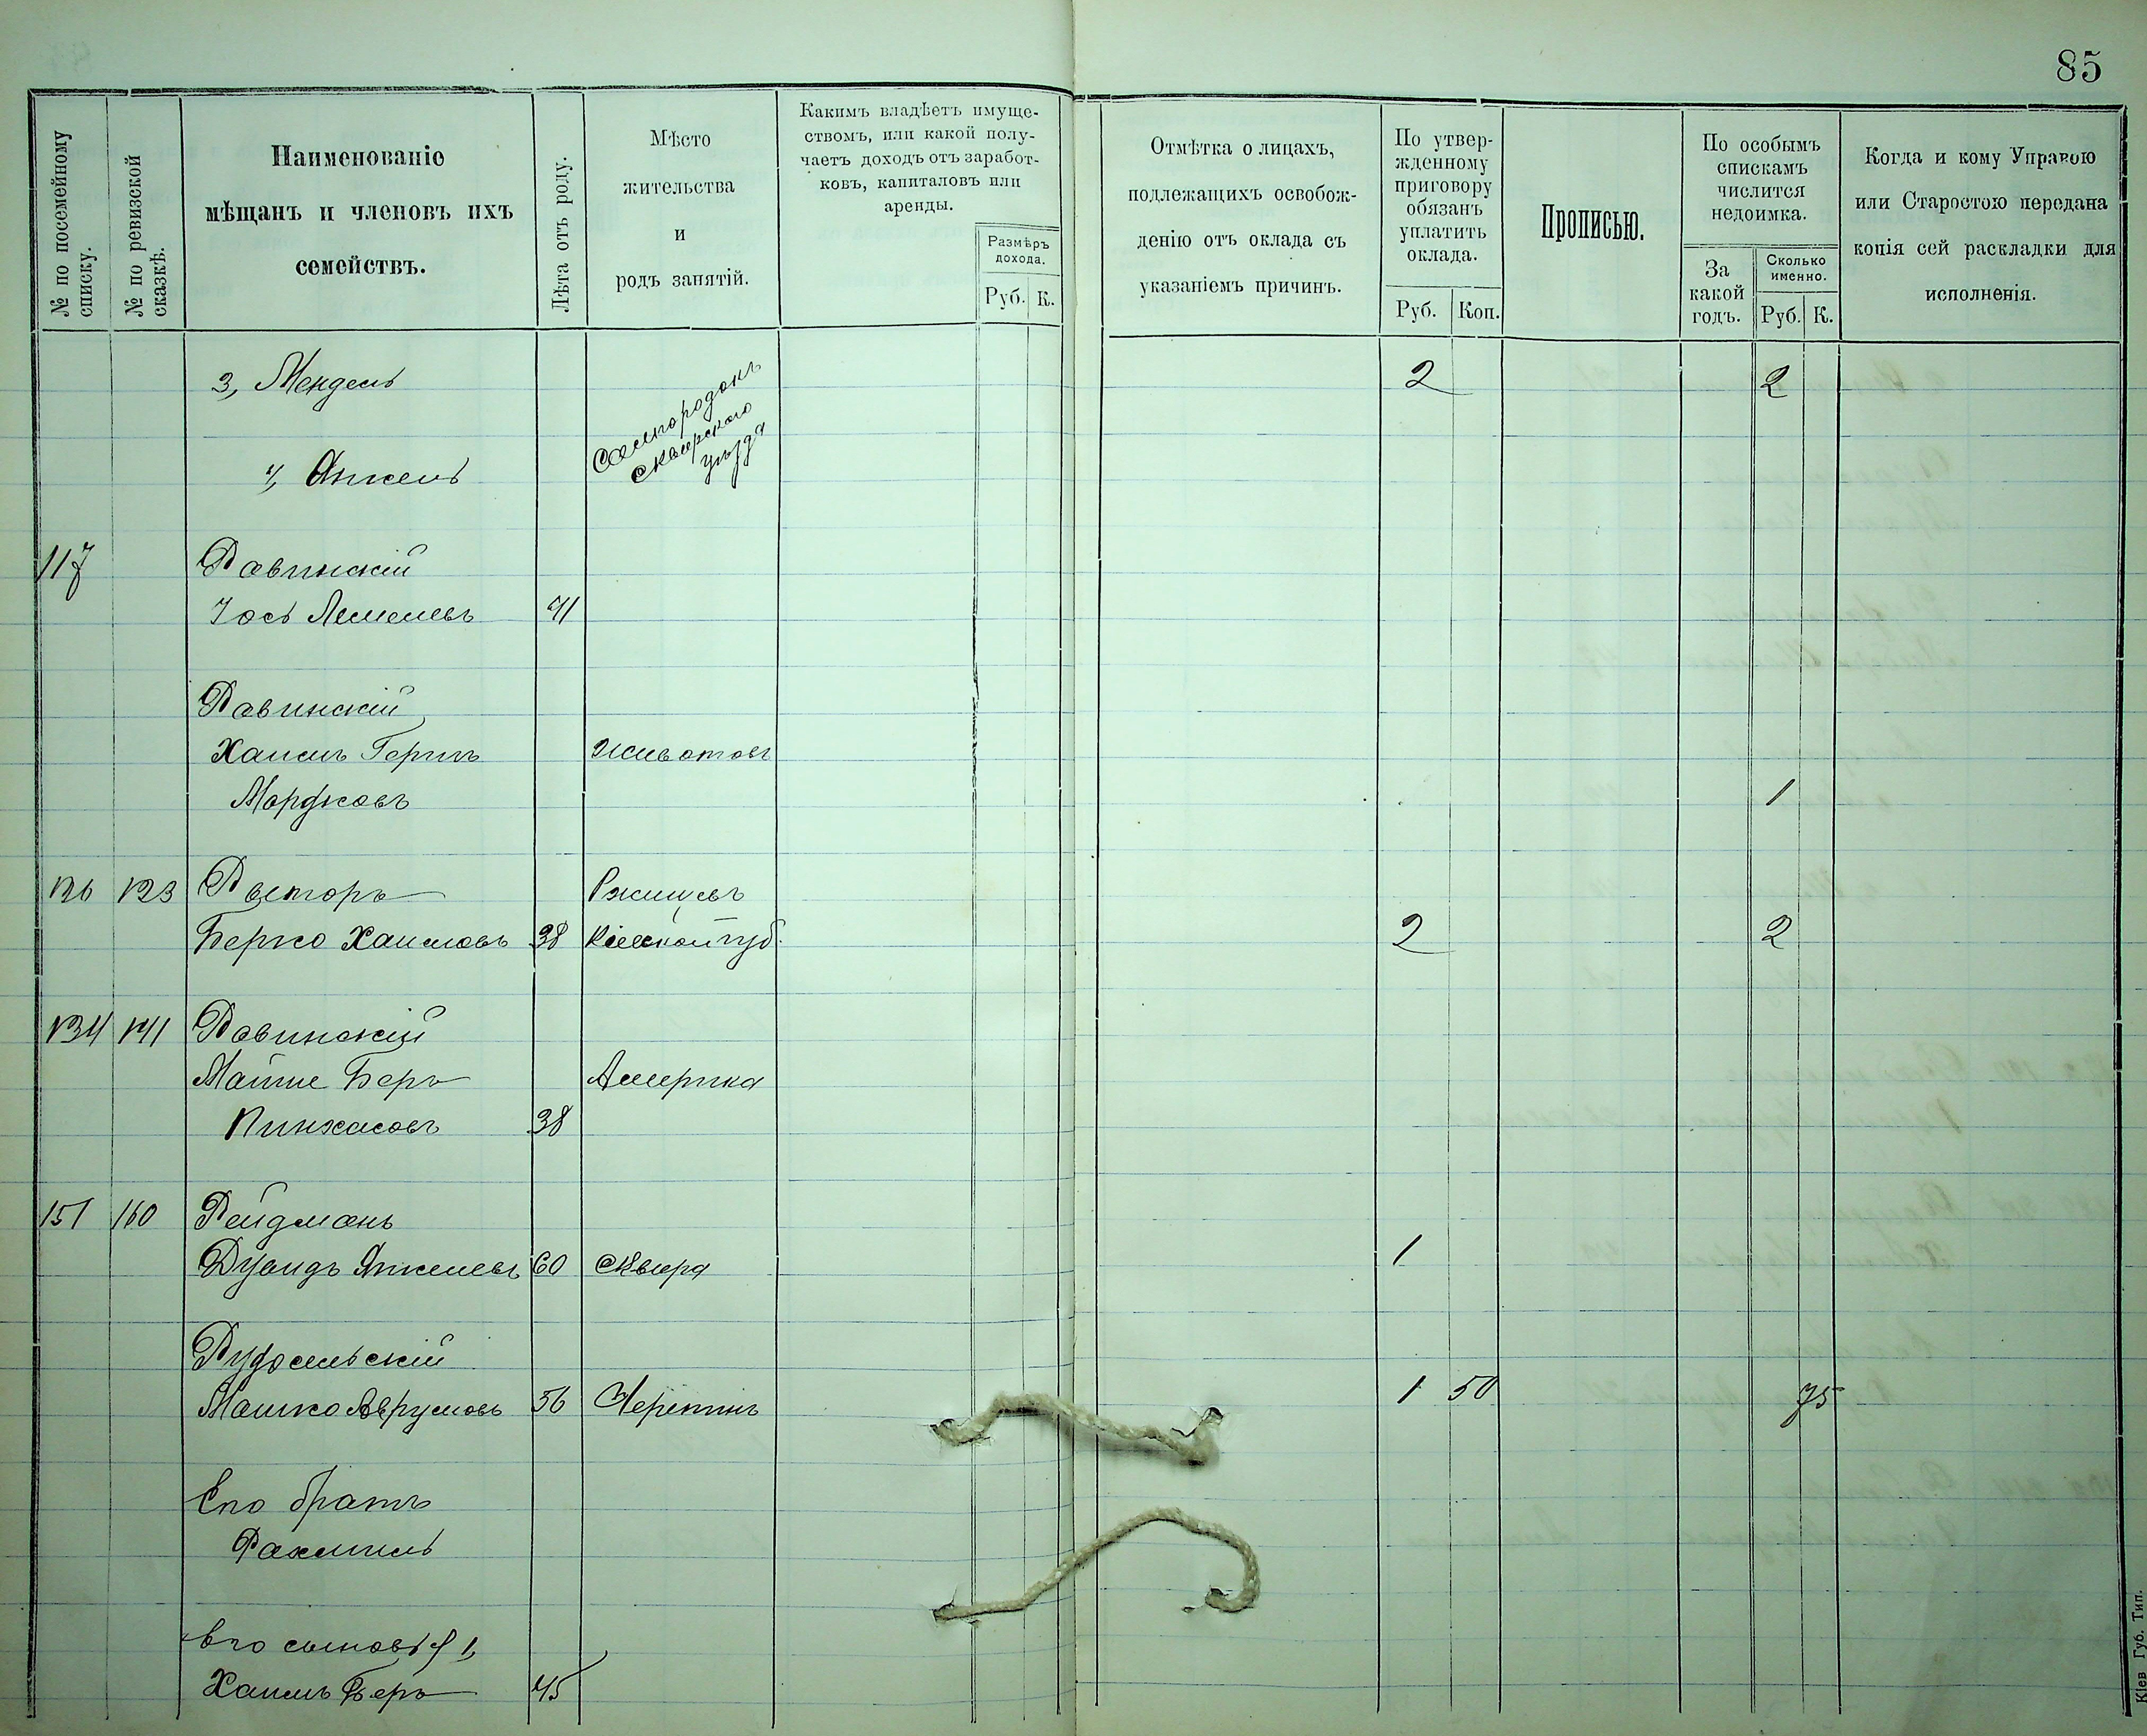 85
№ по посемейному списку.
№ по ревизской сказкѣ.
Наименованіе
мѣщанъ и членовъ ихъ
семействъ.
Лѣта отъ роду.
Мѣсто
жительства
и
родъ занятій.
Какимъ владѣетъ имуще-
ствомъ, или какой полу-
чаетъ доходъ отъ заработ-
ковъ, капиталовъ или
аренды.
Размѣръ
дохода.
Руб. К.
Отмѣтка о лицахъ,
подлежащихъ освобож-
денію отъ оклада съ
указаніемъ причинъ.
По утвер-
жденному
приговору
обязанъ
уплатить
оклада.
Руб. Коп.
Прописью.
По особымъ
спискамъ
числится
недоимка.
За
какой
годъ.
Сколько
именно.
Руб. К.
Когда и кому Управою
или Старостою передана
копія сей раскладки для
исполненія.
3, Мендель 2 2
Самгородокъ
Сквирского
уѣзда
4, Янкель
117 Равинскій
Іось Лемелевъ 41
Равинскій
Хаимъ Гершъ Животовъ
Мордковъ 1
126 123 Ржищевъ
Берко Хаимовъ 38 Кіевской губ. 2 2
134 141 Равинскій
Мойше Беръ Америка
Пинхасовъ 38
151 160 Рейдманъ
Дувидъ Янкелевъ 60 Сквира 1
Мошко Аврумовъ 56 1 50 75
Его братъ
Рахмиль
Его сыновья 1,
Хаимъ Беръ 45
Кіев Губ. Тип.